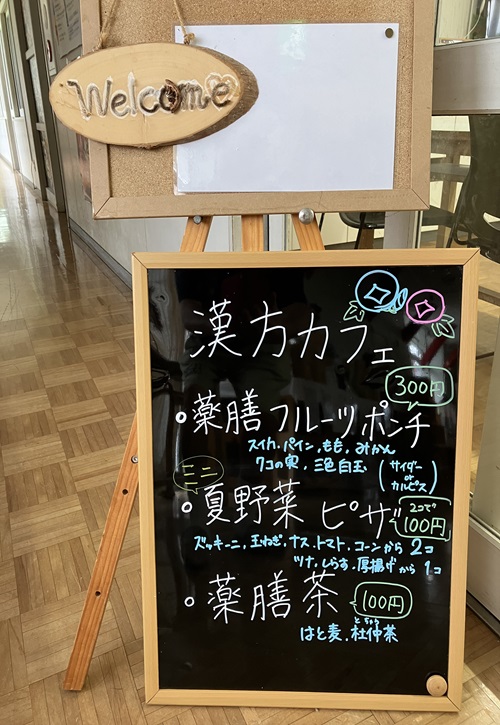 Welcome
漢方カフェ
300円
薬膳フルーツポンチ
スイカ、パイン、もも、みかん
クコの実、三色白玉 (サイダー or カルピス)
ミニ
夏野菜 ピザ 2コで 100円
ズッキーニ、玉ねぎ、ナス、トマト、コーンから 2コ
ツナ、しらす、厚揚げから 1コ
薬膳茶 100円
はと麦、杜仲茶 とちゅう